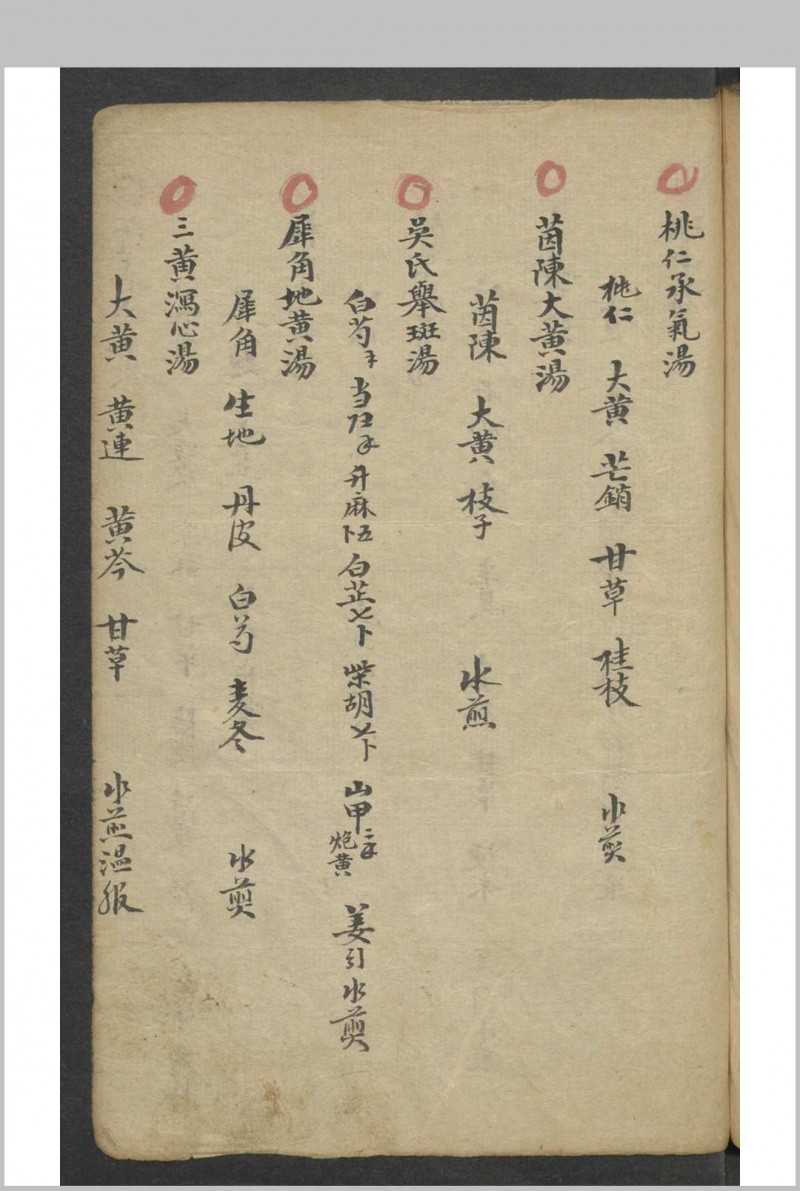 桃仁承氣湯
桃仁 大黃 芒銷 甘草 桂枝 水煎
茵陳大黃湯
茵陳 大黃 枝子 水煎
吳氏舉斑湯
白芍 当归 升麻 白芷 柴胡 山甲 炮黃 姜引水煎
犀角地黃湯
犀角 生地 丹皮 白芍 麦冬 水煎
三黃瀉心湯
大黃 黃連 黃芩 甘草 水煎温服